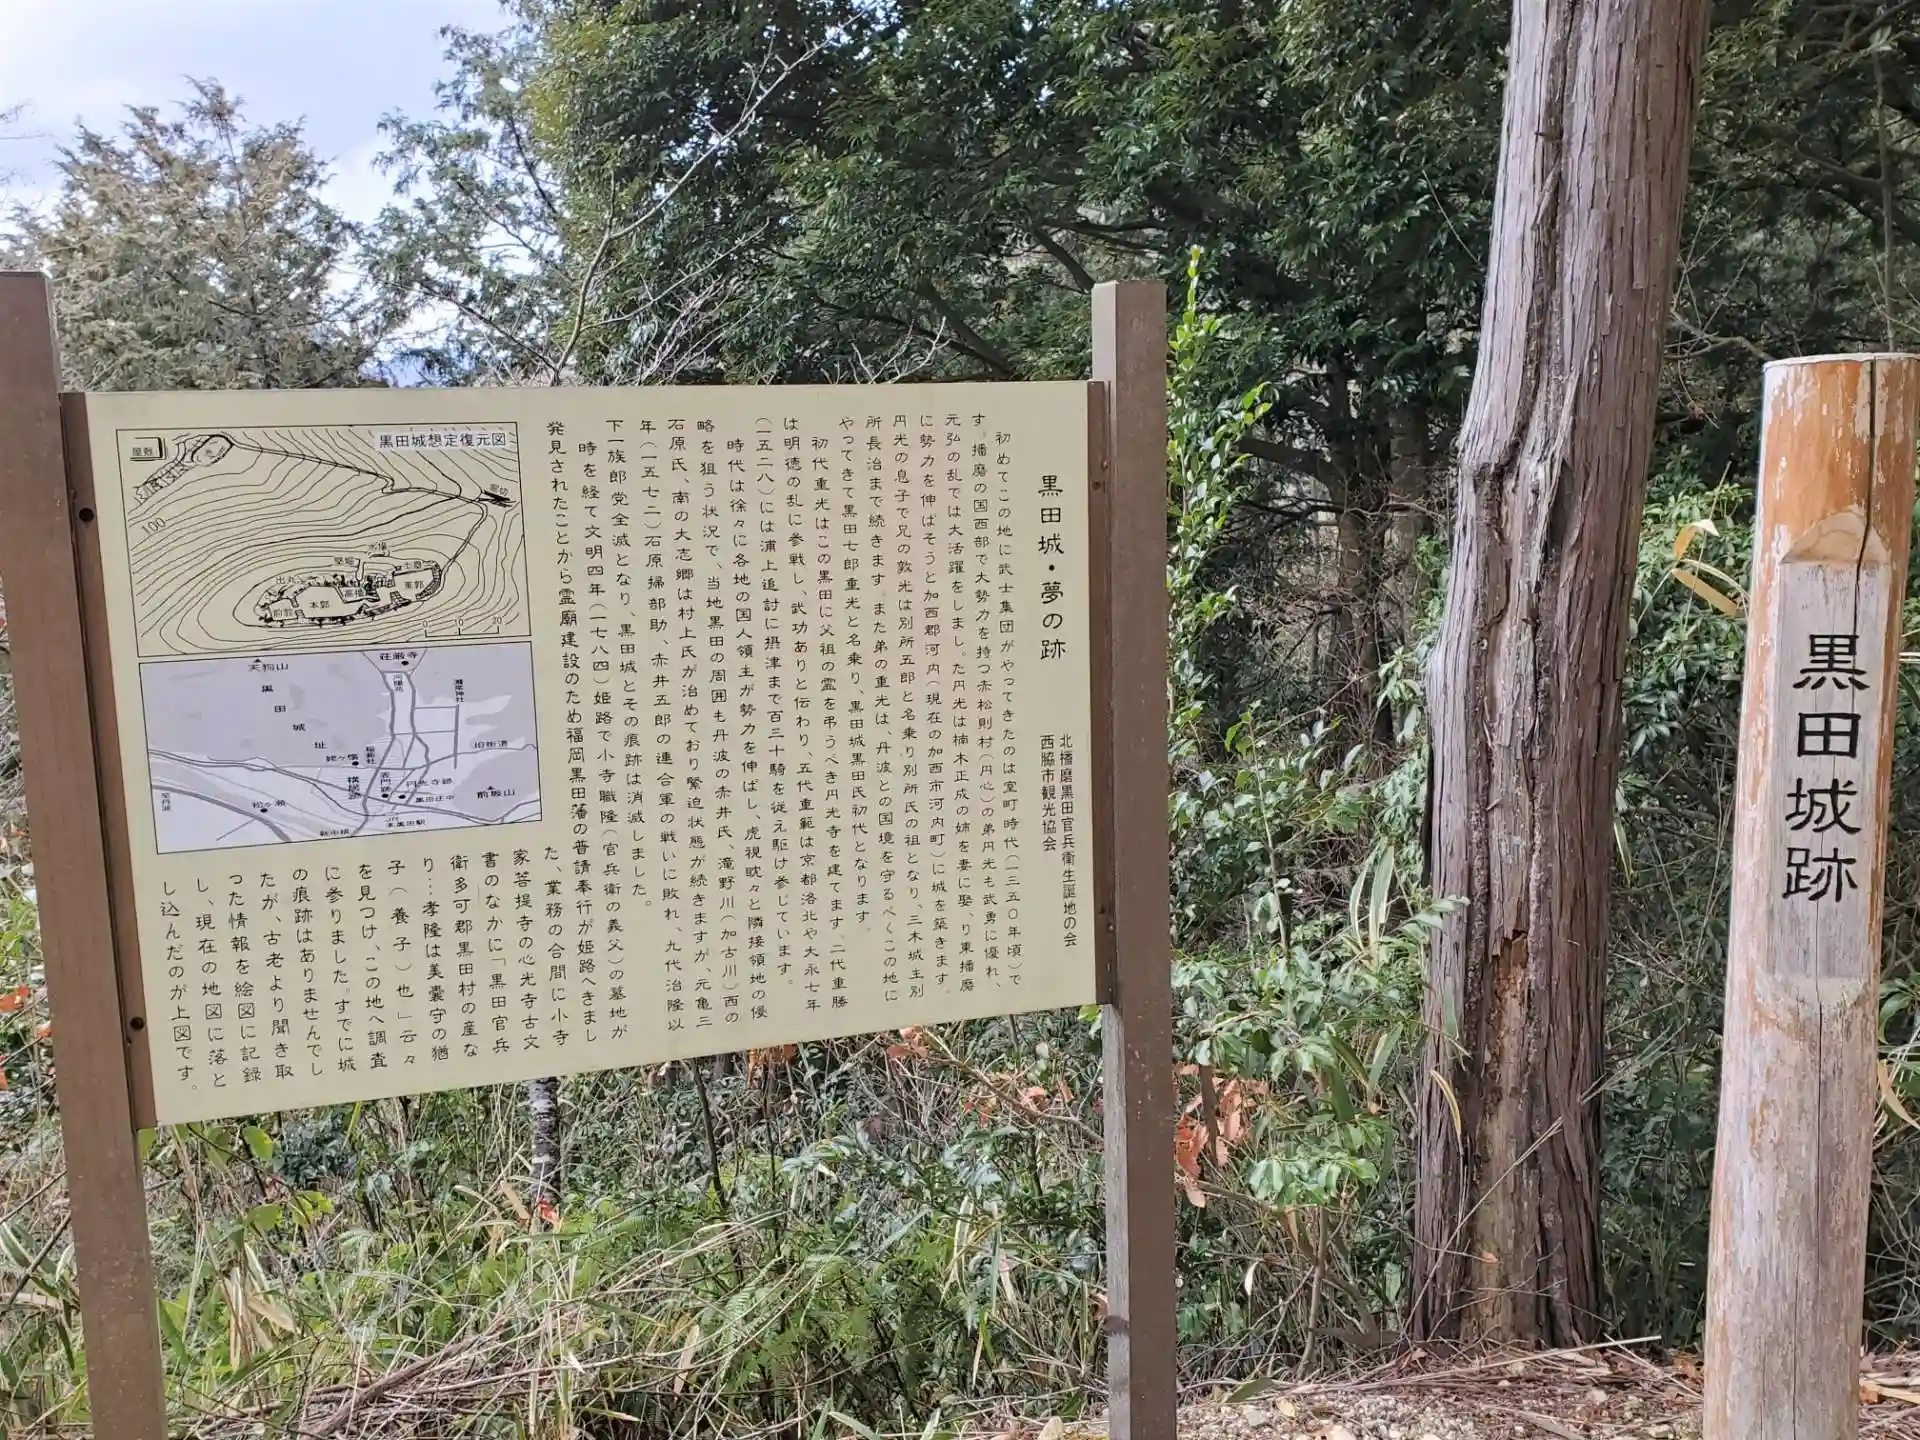 黒田城・夢の跡
北播磨黒田官兵衛生誕地の会
西脇市観光協会
初めてこの地に武士集団がやってきたのは室町時代(一三五〇年頃)で
す。播磨の国西部で大勢力を持つ赤松則村(円心)の弟円光も武勇に優れ、
元弘の乱では大活躍をしました。た円光は楠木正成の姉を妻に娶、り東播磨
に勢力を伸ばそうと加西郡河内(現在の加西市河内町)に城を築きます。
円光の息子で兄の敦光は別所五郎と名乗り別所氏の祖となり、三木城主別
所長治まで続きます。また弟の重光は、丹波との国境を守るべくこの地に
やってきて黒田七郎重光と名乗り、黒田城黒田氏初代となります。
初代重光はこの黒田に父祖の霊を弔うべき円光寺を建てます。二代重勝
は明徳の乱に参戦し、武功ありと伝わり、五代重範は京都洛北や大永七年
(一五二八)には浦上追討に摂津まで百三十騎を従え駆け参じています。
時代は徐々に各地の国人領主が勢力を伸ばし、虎視眈々と隣接領地の侵
略を狙う状況で、当地黒田の周囲も丹波の赤井氏、滝野川(加古川)西の
石原氏、南の大志郷は村上氏が治めており緊迫状態が続きますが、元亀三
年(一五七二)石原掃部助、赤井五郎の連合軍の戦いに敗れ、九代治隆以
下一族郎党全滅となり、黒田城とその痕跡は消滅しました。
時を経て文明四年(一七八四)姫路で小寺職隆(官兵衛の義父)の墓地が
発見されたことから霊廟建設のため福岡黒田藩の普請奉行が姫路へきまし
た、業務の合間に小寺
家菩提寺の心光寺古文
書のなかに「黒田官兵
衛多可郡黒田村の産な
り…孝隆は美嚢守の猶
子(養子)也」云々
を見つけ、この地へ調査
に参りました。すでに城
の痕跡はありませんでし
たが、古老より聞き取
った情報を絵図に記録
し、現在の地図に落と
し込んだのが上図です。
黒田城想定復元図
屋敷
堀切
100
水場
竪堀
土塁
出丸
高櫓
東郭
本郭
前郭
0 10 20
天狗山
荘厳寺
黒田城址
旧街道
姥ヶ懐
稲荷社
横搦道
円光寺跡
黒田庄中
前坂山
松ヶ瀬
JR
本黒田駅
至丹波
黒田城跡